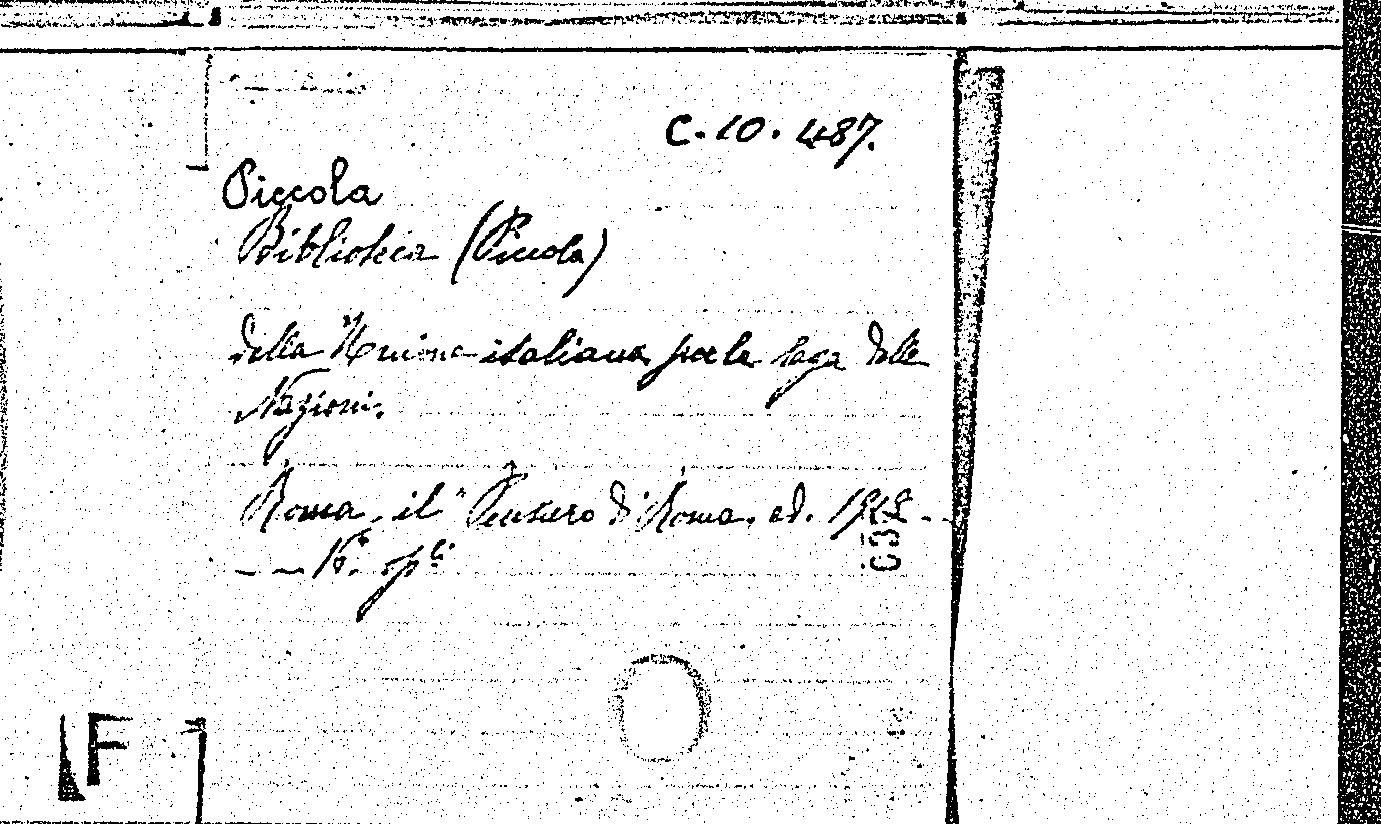 C. 10. 487.
Piccola
Biblioteca (Piccola)
della Unione italiana per la Lega delle
Nazioni.
Roma, il "Pensiero di Roma, ed.
16.° op.li
F